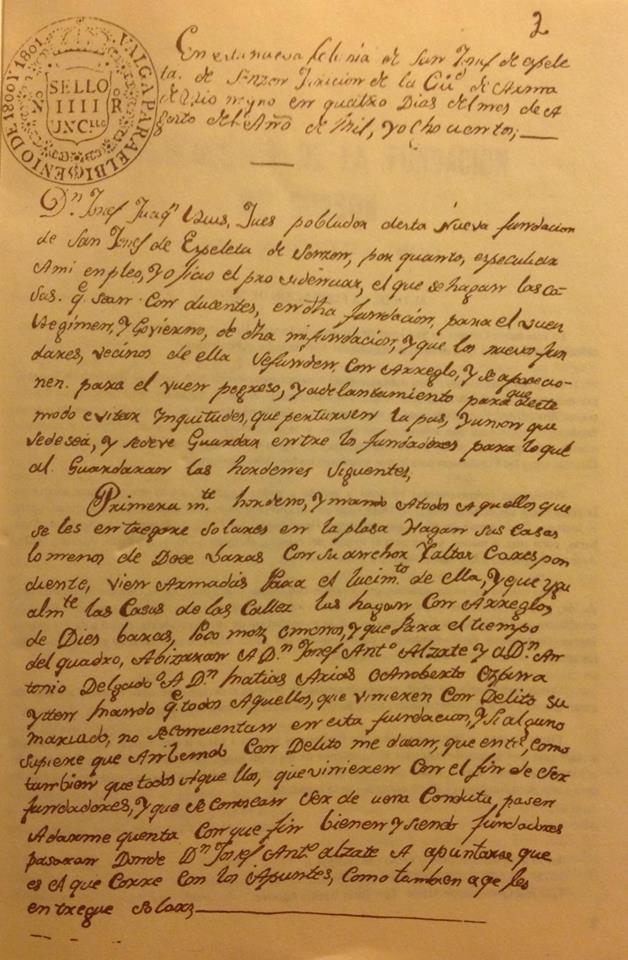 2
VALGA PARA EL BIENIO DE 1800 Y 1801
SELLO
IIII
UNC.llo
R
En esta nueva Colonia de San Josef de Espele
ta. de Sonzon Jurisción de la Ciu.d de Arma
de Rio negro en quatro Dias del mes de A
gosto del Año de Mil, y ochosientos;
D.n Josef Juaq.n Ruis, Jues poblador desta Nueva fundacion
de San Josef de Espeleta de Sonzon, por quanto, es peculiar
Ami enpleo, y oficio el pro sidenciar, el que se hagan las Co
sas. q.e sean Con ducentes, en dha fundación, para el vuen
Regimen, y Govierno, de dha mi fundacion, y que los nuevos fun
dores, vecinos de ella Sefunden Con Arreglo, y
nen. para el vuen pogreso, y adelantamiento para que deste
modo evitar Inquitudes, que perturven la pas, y union que
sedesea, y sedeve Guardar entre lo fundadores para lo qual
al Guardaran las hordenes siguentes,
Primera m.te hordeno, y mando Atodos Aquellos que
se les entregare solares en la plasa Hagan sus Casas
lo menos de Doce varas Con su anchor Yaltar Corespon
diente, vien Armadas Para el lucim.to de ella, y que ygu
alm.te las Casas de las Callez las hagan Con Arreglos
de Dies baras, Poco maz omenos, y que Para el tiempo
del quadro, Abizaran A D.n Josef Ant.o Alzate y a D.n An
tonio Delgado o A D.n Matias Arias o Anoberto
ytten Mando q.e todos Aquellos, que vinieren Con Delito su
mariado, no Seconcuentan en esta fundacion, y Si alguno
supiere que Con Delito me que como
tanbien que todos Aque llos, que vinieren Con el fin de Ser
fundadores, y que se Conoscan Ser de vena Conduta, pasen
Adarme quenta Con que fin bienen y siendo fundadores
pasaran Donde D.n Josef Ant.o alzate A apuntarse que
es el que Corre Con los Apuntes, Como tanbien a q.e les
entregue Solares